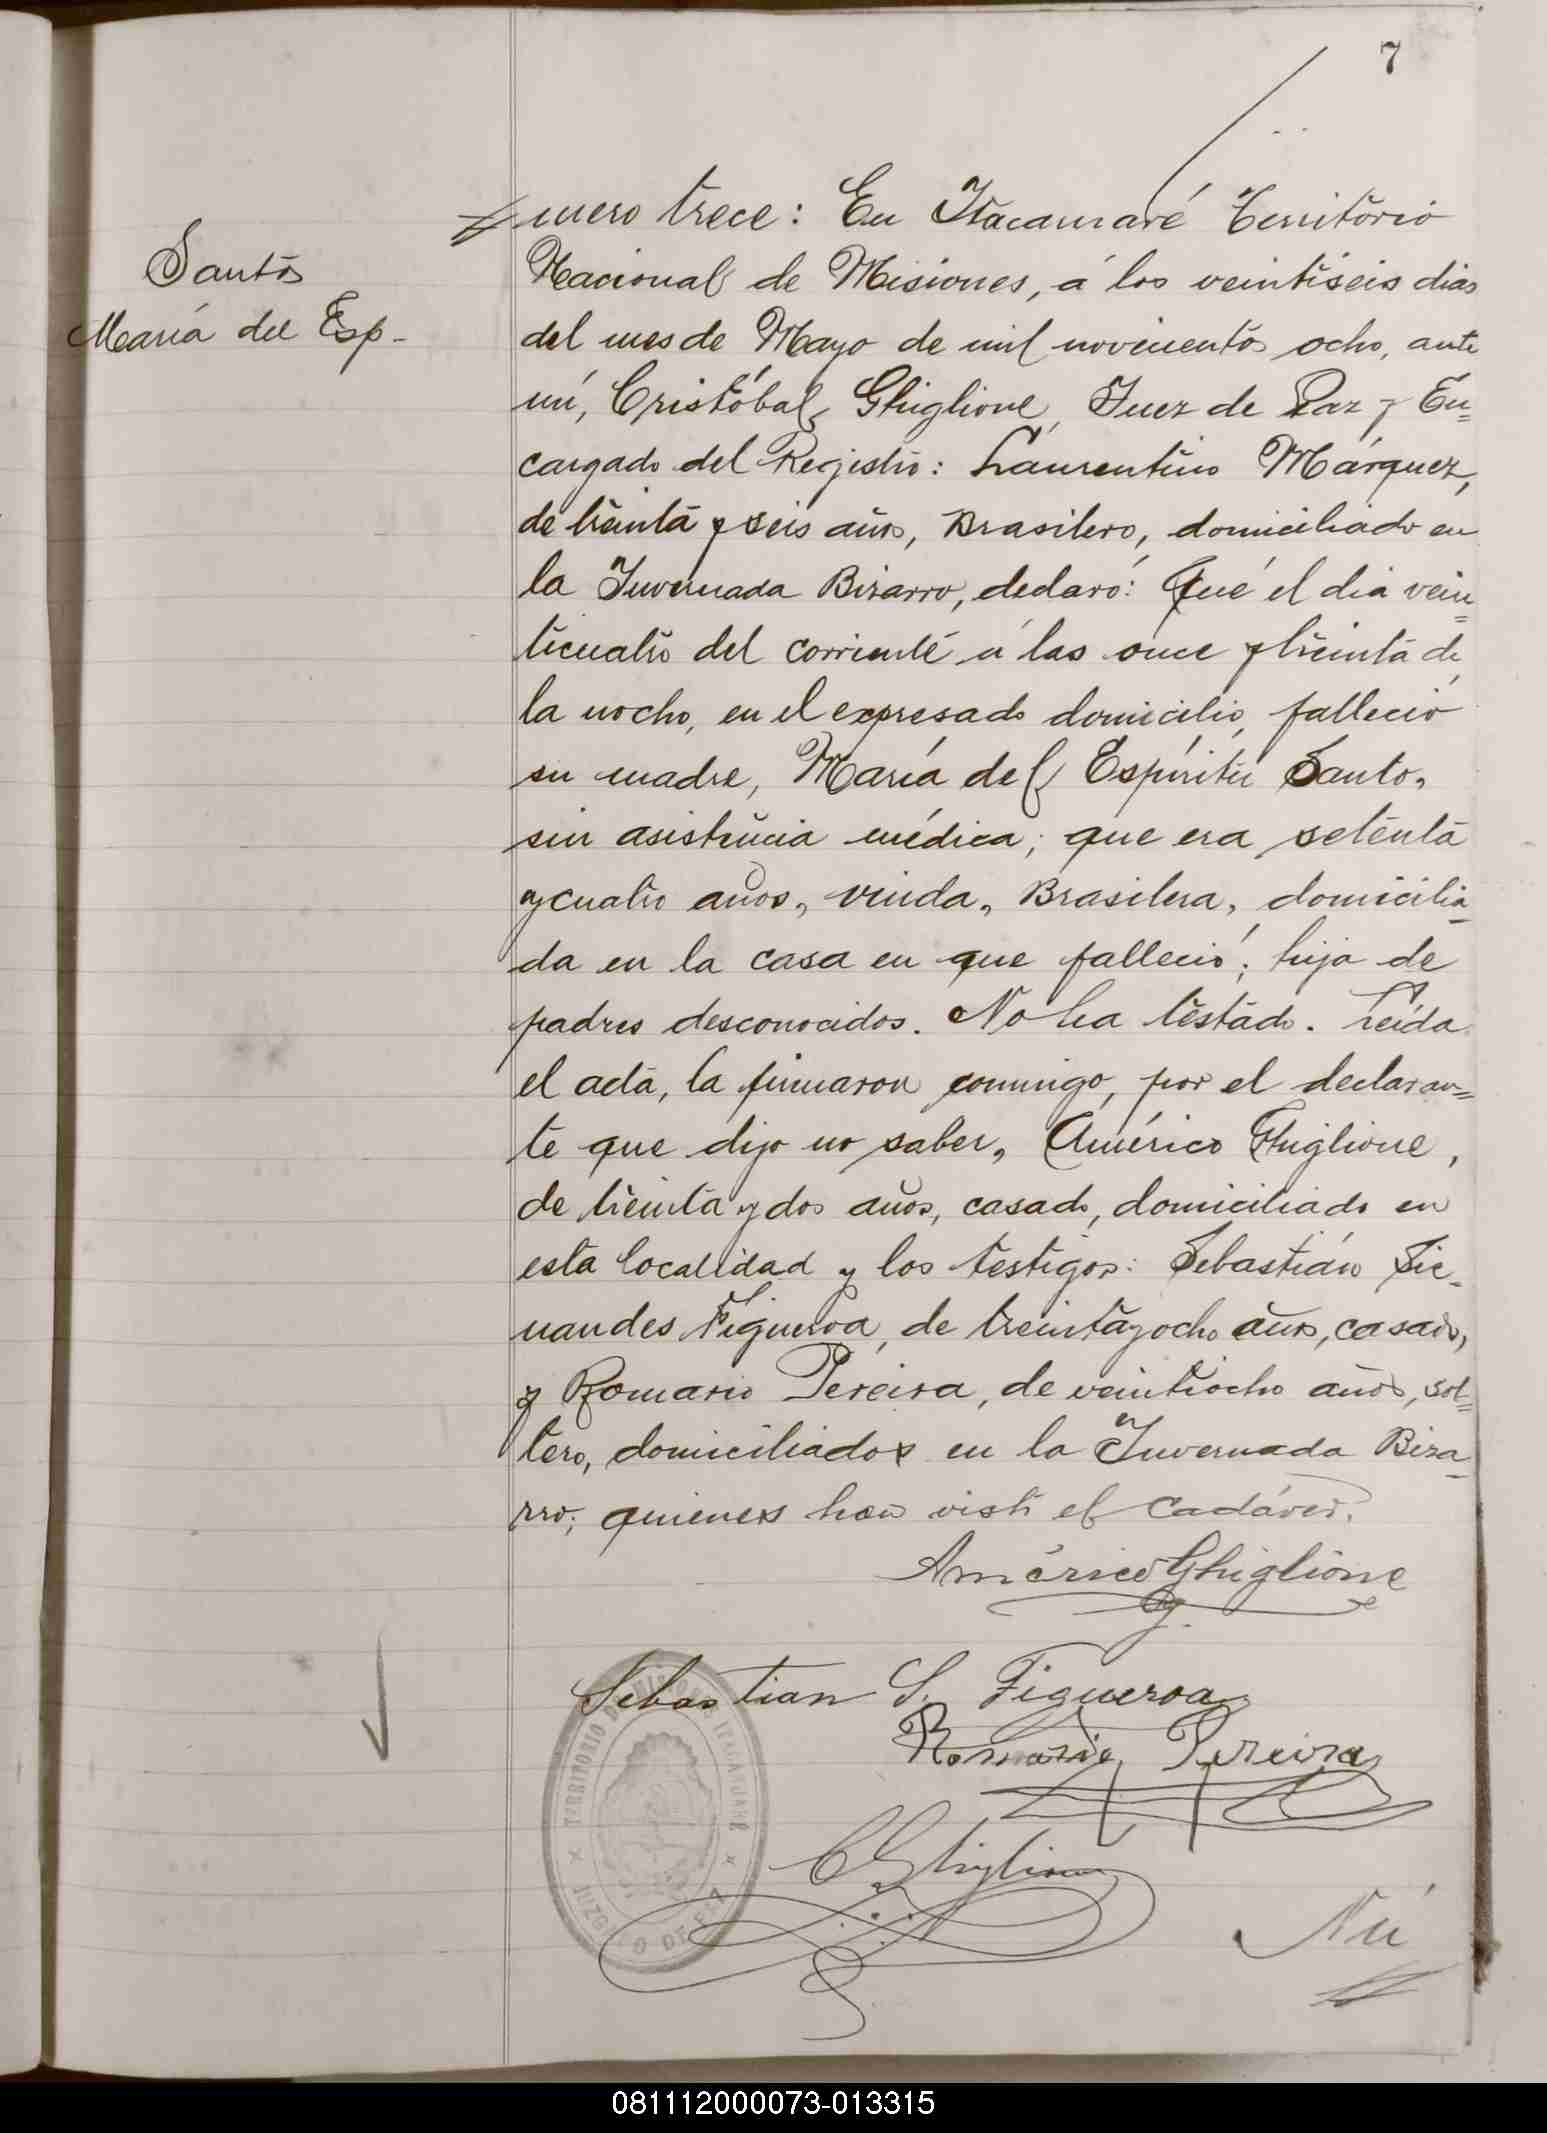 7
Santos
María del Esp-
mero trece: En Itacaruaré Territorio
Nacional de Misiones, á los veintiseis dias
del mes de Mayo de mil novecientos ocho, ante
mí, Cristóbal Ghiglione, Juez de Paz y En=
cargado del Registro: Laurentino Márquez,
de treinta y seis años, Brasilero, domiciliado en
la Invernada Bizarro, declaró: Que el dia vein=
ticuatro del corriente á las once y treinta de
la noche, en el expresado domicilio, falleció
su madre, María del Espíritu Santo,
sin asistencia médica; que era setenta
y cuatro años, viuda, Brasilera, domicilia-
da en la casa en que falleció; hija de
padres desconocidos. No ha testado. Leída
el acta, la firmaron conmigo, por el declaran=
te que dijo no saber, Américo Ghiglione,
de treinta y dos años, casado, domiciliado en
esta localidad y los testigos: Sebastián Sic-
nandes Figueroa, de treinta y ocho años, casado,
y Romario Pereira, de veintiocho años, sol=
tero, domiciliados en la Invernada Biza-
rro; quienes han visto el cadáver.
Américo Ghiglione
Sebastian S. Figueroa
Romario Pereira
C Ghiglione
JUZGADO DE PAZ
TERRITORIO DE MISIONES ITACARUARÉ
Nú
081112000073-013315